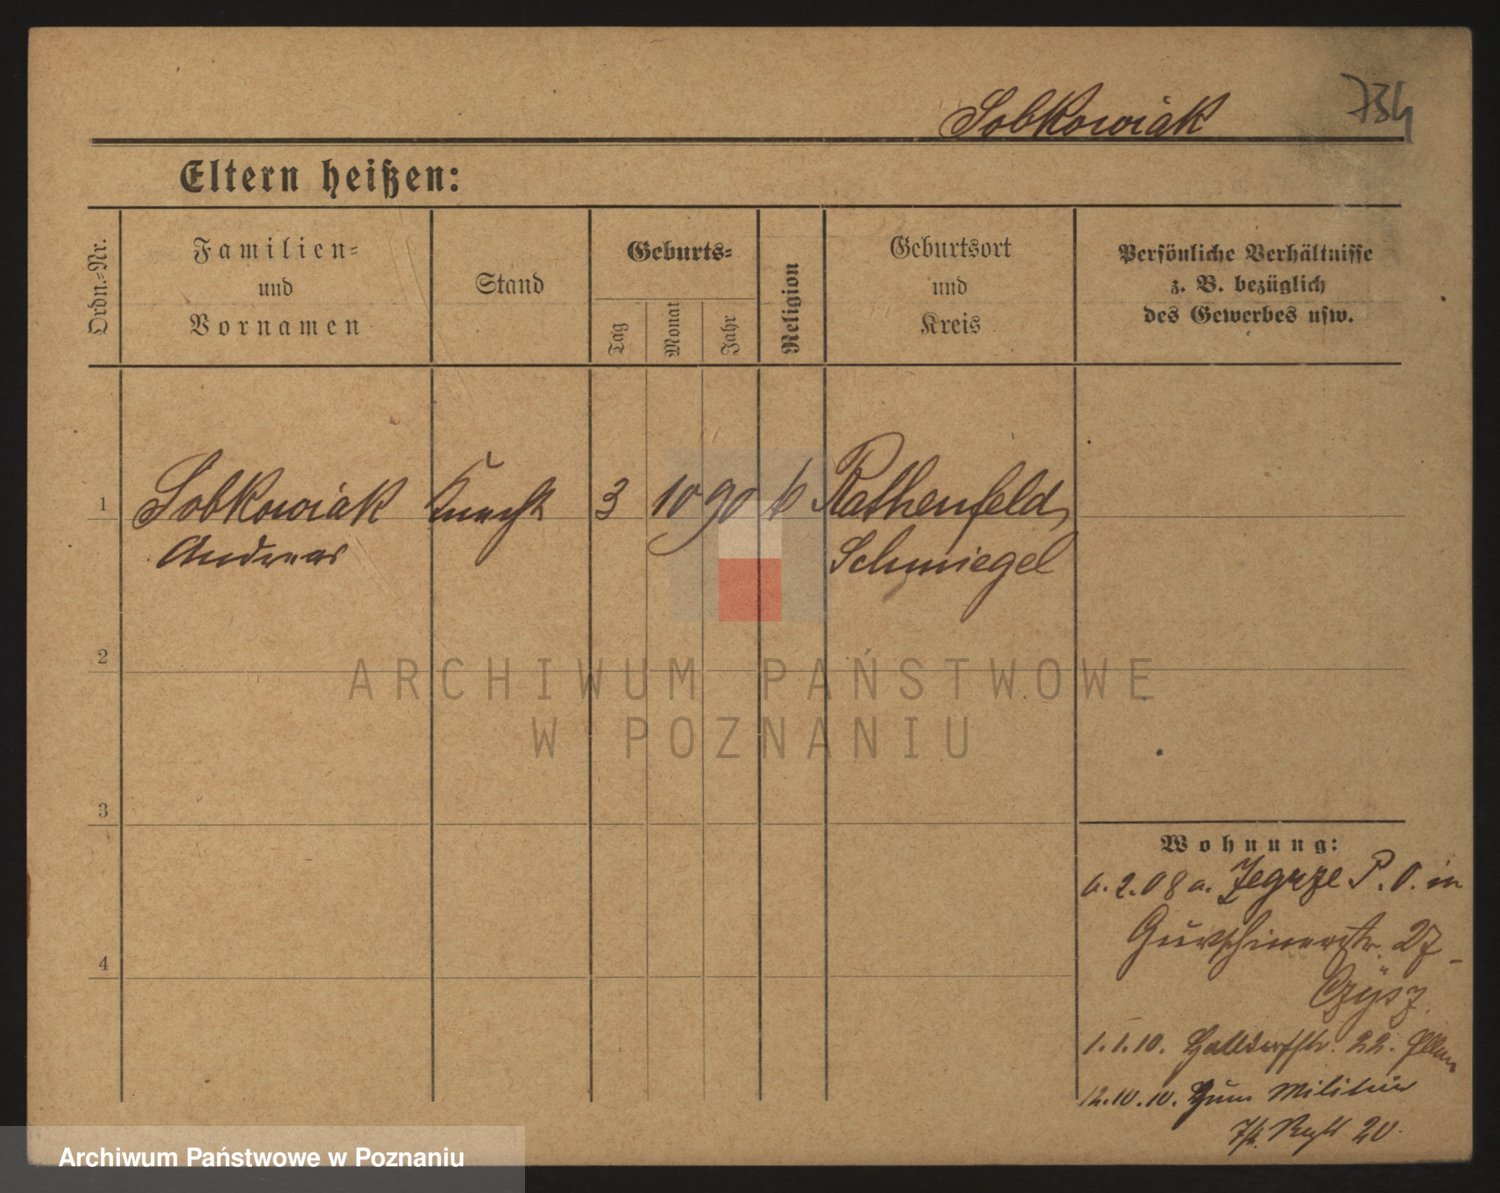 Sobkowiak 734
Eltern heißen:
Ordn.-Nr.
Familien-
und
Vornamen
Stand
Geburts-
Tag
Monat
Jahr
Religion
Geburtsort
und
Kreis
Persönliche Verhältnisse
z. B. bezüglich
des Gewerbes usw.
1 Sobkowiak Knecht 3 10 90 k Rathenfeld,
Andreas Schmiegel
2
ARCHIWUM PAŃSTWOWE
W POZNANIU
3
Wohnung:
6.2.08 a. Zegrze P. O. in
Gurtschinerstr. 27
4
1.1.10. 22.
12.10.10. Zum Militär
20.
Archiwum Państwowe w Poznaniu